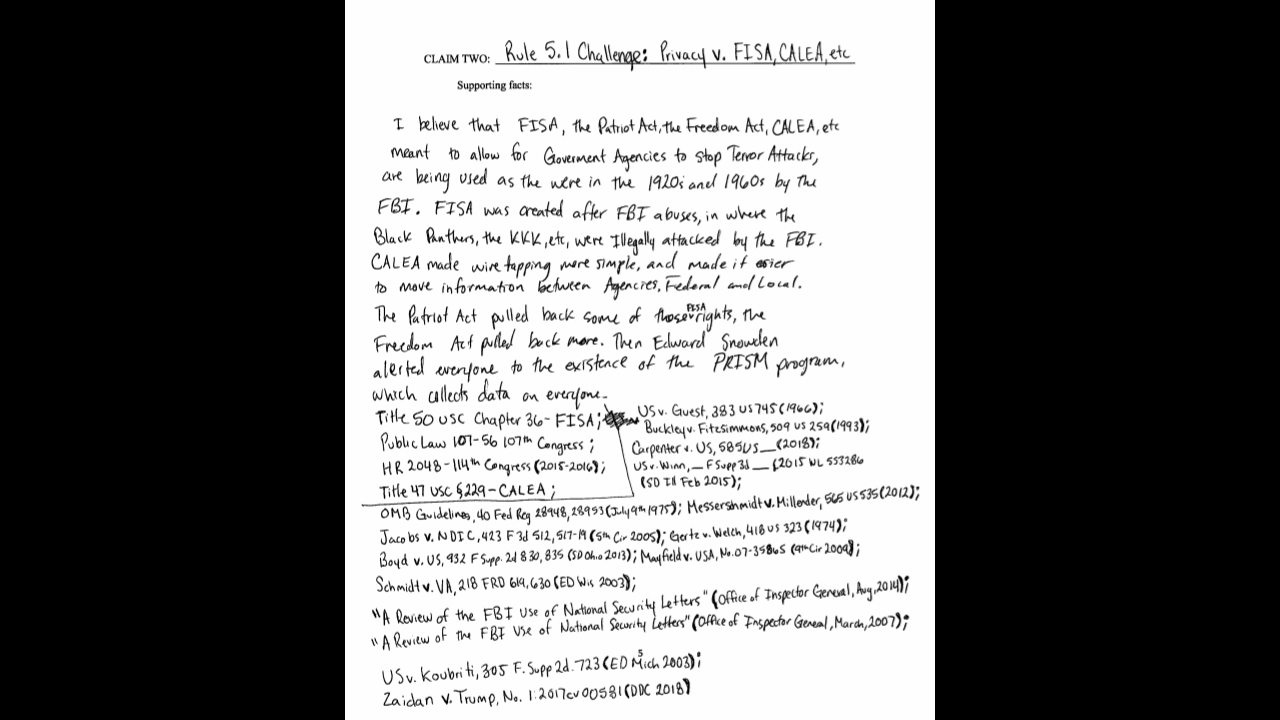 CLAIM TWO: Rule 5.1 Challenge: Privacy v. FISA, CALEA, etc
Supporting facts:
I believe that FISA, the Patriot Act, the Freedom Act, CALEA, etc
meant to allow for Goverment Agencies to stop Terror Attacks,
are being used as the were in the 1920s and 1960s by the
FBI. FISA was created after FBI abuses, in where the
Black Panthers, the KKK, etc, were Illegally attacked by the FBI.
CALEA made wire tapping more simple, and made it esier
to move information between Agencies, Federal and Local.
The Patriot Act pulled back some of those FISA rights, the
Freedom Act pulled back more. Then Edward Snowden
alerted everyone to the existence of the PRISM program,
which collects data on everyone.
Title 50 USC Chapter 36 - FISA;
Public Law 107-56 107th Congress;
HR 2048 - 114th Congress (2015-2016);
Title 47 USC §229 - CALEA;
US v. Guest, 383 US 745 (1966);
Buckley v. Fitzsimmons, 509 US 259 (1993);
Carpenter v. US, 585 US __ (2018);
US v. Winn, __ F Supp 3d __ (2015 WL 553286
(SD Ill Feb 2015);
OMB Guidelines, 40 Fed Reg 28948, 28953 (July 9th 1975); Messershmidt v. Millender, 565 US 535 (2012);
Jacobs v. NDIC, 423 F 3d 512, 517-19 (5th Cir 2005); Gertz v. Welch, 418 US 323 (1974);
Boyd v. US, 932 F Supp. 2d 830, 835 (SD Ohio 2013); Mayfield v. USA, No. 07-35865 (9th Cir 2009);
Schmidt v. VA, 218 FRD 619, 630 (ED Wis 2003);
"A Review of the FBI Use of National Security Letters" (Office of Inspector General, Aug, 2014);
"A Review of the FBI Use of National Security Letters" (Office of Inspector General, March, 2007);
US v. Koubriti, 305 F. Supp 2d. 723 (ED Mich 2003);
Zaidan v. Trump, No. 1:2017cv00581 (DDC 2018)